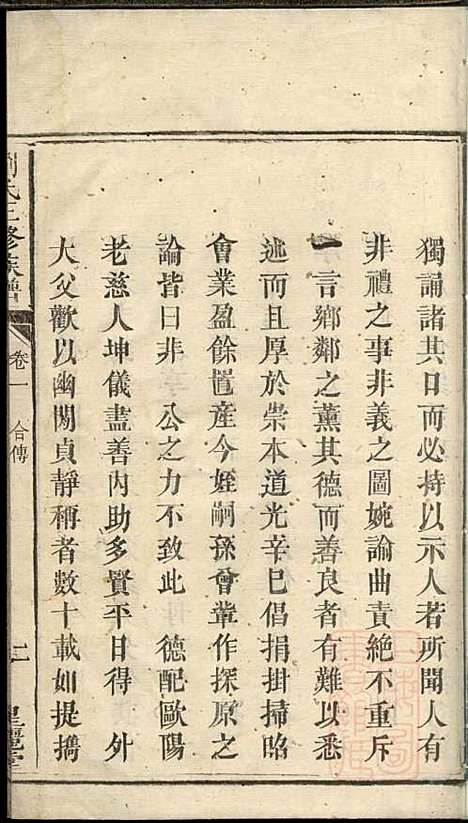 獨誦諸其口而必持以示人若所聞人有
非禮之事非義之圖婉論曲責絶不重斥
一言鄉鄰之薰其德而善良者有難以悉
述而且厚於崇本道光辛巳倡捐掛掃昭
會業盈餘置産今姪嗣孫曾輩作探原之
論皆曰非 公之力不致此 德配歐陽
老慈人坤儀盡善内助多賢平日得 外
大父歡以幽閒貞靜稱者數十載如提擕
劉氏三修族譜
卷一
合傳
二